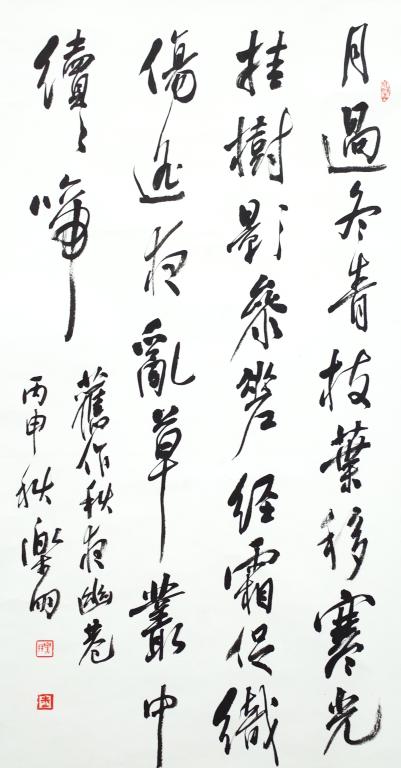 月過冬青枝葉移寒光
挂樹影參差經霜促織
傷夜亂草叢中
續〻啼
舊作秋夜幽巷
丙申秋樂明